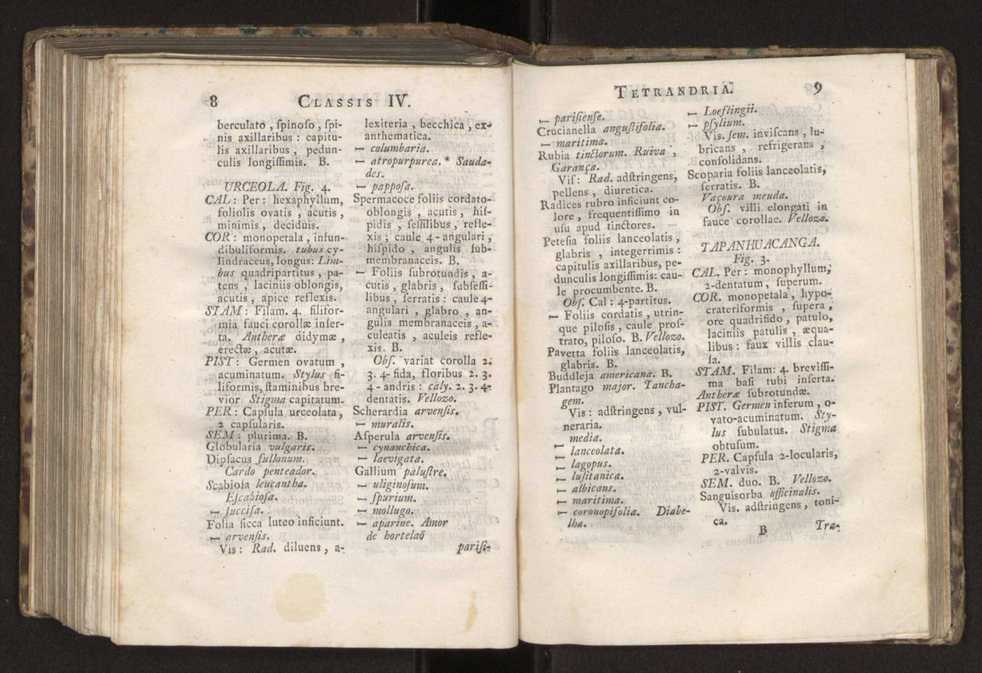 8 CLASSIS IV.
berculato, ſpinoſo, ſpi-
nis axillaribus: capitu-
lis axillaribus, pedun-
culis longiſſimis. B.
URCEOLA. Fig. 4.
CAL: Per: hexaphyllum,
foliolis ovatis, acutis,
minimis, deciduis.
COR: monopetala, infun-
dibuliformis. tubus cy-
lindraceus, longus: Lim-
bus quadripartitus, pa-
tens, laciniis oblongis,
acutis, apice reflexis.
STAM: Filam. 4. filifor-
mia fauci corollæ inſer-
ta. Antheræ didymæ,
erectæ, acutæ.
PIST: Germen ovatum,
acuminatum. Stylus fi-
liformis, ſtaminibus bre-
vior Stigma capitatum.
PER: Capſula urceolata,
2 capſularis.
SEM: plurima. B.
Globularia vulgaris.
Dipſacus fullonum.
Cardo penteador.
Scabioſa leucantha.
Eſcabioſa.
— ſucciſa.
Folia ſicca luteo inficiunt.
— arvenſis.
Vis: Rad. diluens, a-
lexiteria, becchica, ex-
anthematica.
— columbaria.
— atropurpurea. * Sauda-
des.
— pappoſa.
Spermacoce foliis cordato-
oblongis, acutis, hiſ-
pidis, ſeſſilibus, refle-
xis; caule 4-angulari,
hiſpido, angulis ſub-
membranaceis. B.
— Foliis ſubrotundis, a-
cutis, glabris, ſubſeſſi-
libus, ſerratis: caule 4-
angulari, glabro, an-
gulis membranaceis, a-
culeatis, aculeis refle-
xis. B.
Obſ. variat corolla 2.
3. 4-fida, floribus 2. 3.
4-andris: caly. 2. 3. 4-
dentatis. Vellozo.
Scherardia arvenſis.
— muralis.
Aſperula arvenſis.
— cynanchica.
— laevigata.
Gallium paluſtre.
— uliginoſum.
— ſpurium.
— mollugo.
— aparine. Amor
de hortelaõ
pariſi-
TETRANDRIA. 9
— pariſienſe.
Crucianella anguſtifolia.
— maritima.
Rubia tinctorum. Ruiva,
Garança.
Viſ: Rad. adſtringens,
pellens, diuretica.
Radices rubro inficiunt co-
lore, frequentiſſimo in
uſu apud tinctores.
Peteſia foliis lanceolatis,
glabris, integerrimis:
capitulis axillaribus, pe-
dunculis longiſſimis: cau-
le procumbente. B.
Obſ. Cal: 4-partitus.
— Foliis cordatis, utrin-
que piloſis, caule proſ-
trato, piloſo. B. Vellozo.
Pavetta foliis lanceolatis,
glabris. B.
Buddleja americana. B.
Plantago major. Tancha-
gem.
Vis: adſtringens, vul-
neraria.
media.
— lanceolata.
— lagopus.
— luſitanica.
— albicans.
— maritima.
— coronopifolia. Diabe-
lha.
— Loeflingii.
— pſylium.
Vis. ſem. inviſcans, lu-
bricans, refrigerans,
conſolidans.
Scoparia foliis lanceolatis,
ſerratis. B.
Vaçoura meuda.
Obſ. villi elongati in
fauce corollae. Vellozo.
TAPANHUACANGA.
Fig. 3.
CAL. Per: monophyllum,
2-dentatum, ſuperum.
COR. monopetala, hypo-
crateriformis, ſupera,
ore quadrifido, patulo,
laciniis patulis, æqua-
libus: faux villis clau-
ſa.
STAM. Filam: 4. breviſſi-
ma baſi tubi inſerta.
Antheræ ſubrotundæ.
PIST. Germen inferum, o-
vato-acuminatum. Sty-
lus ſubulatus. Stigma
obtuſum.
PER. Capſula 2-locularis,
2-valvis.
SEM. duo. B. Vellozo.
Sanguisorba officinalis.
Vis. adſtringens, toni-
ca.
B Tra-